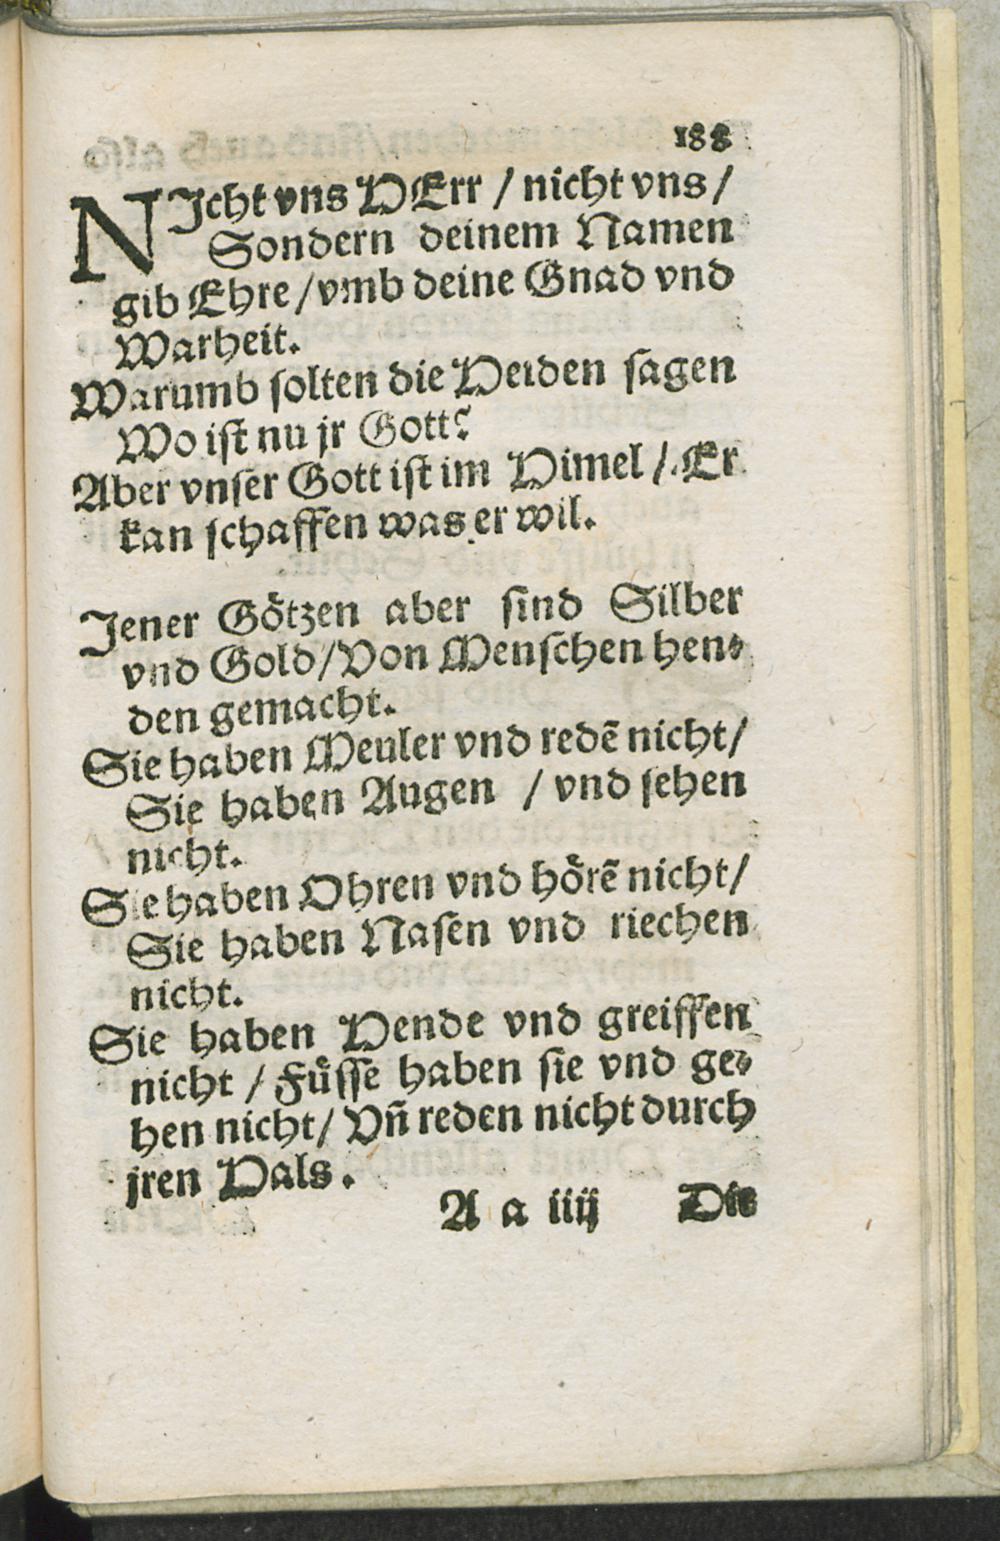 188
NJcht vns HErr / nicht vns /
Sondern deinem Namen
gib Ehre / vmb deine Gnad vnd
Warheit.
Warumb solten die Heiden sagen
Wo ist nu jr Gott?
Aber vnser Gott ist im Himel / Er
kan schaffen was er wil.
Jener Götzen aber sind Silber
vnd Gold / Von Menschen hen⸗
den gemacht.
Sie haben Meuler vnd redẽ nicht /
Sie haben Augen / vnd sehen
nicht.
Sie haben Ohren vnd hörẽ nicht /
Sie haben Nasen vnd riechen
nicht.
Sie haben Hende vnd greiffen
nicht / Füsse haben sie vnd ge⸗
hen nicht / Vñ reden nicht durch
jren Hals.
A a iiij Die